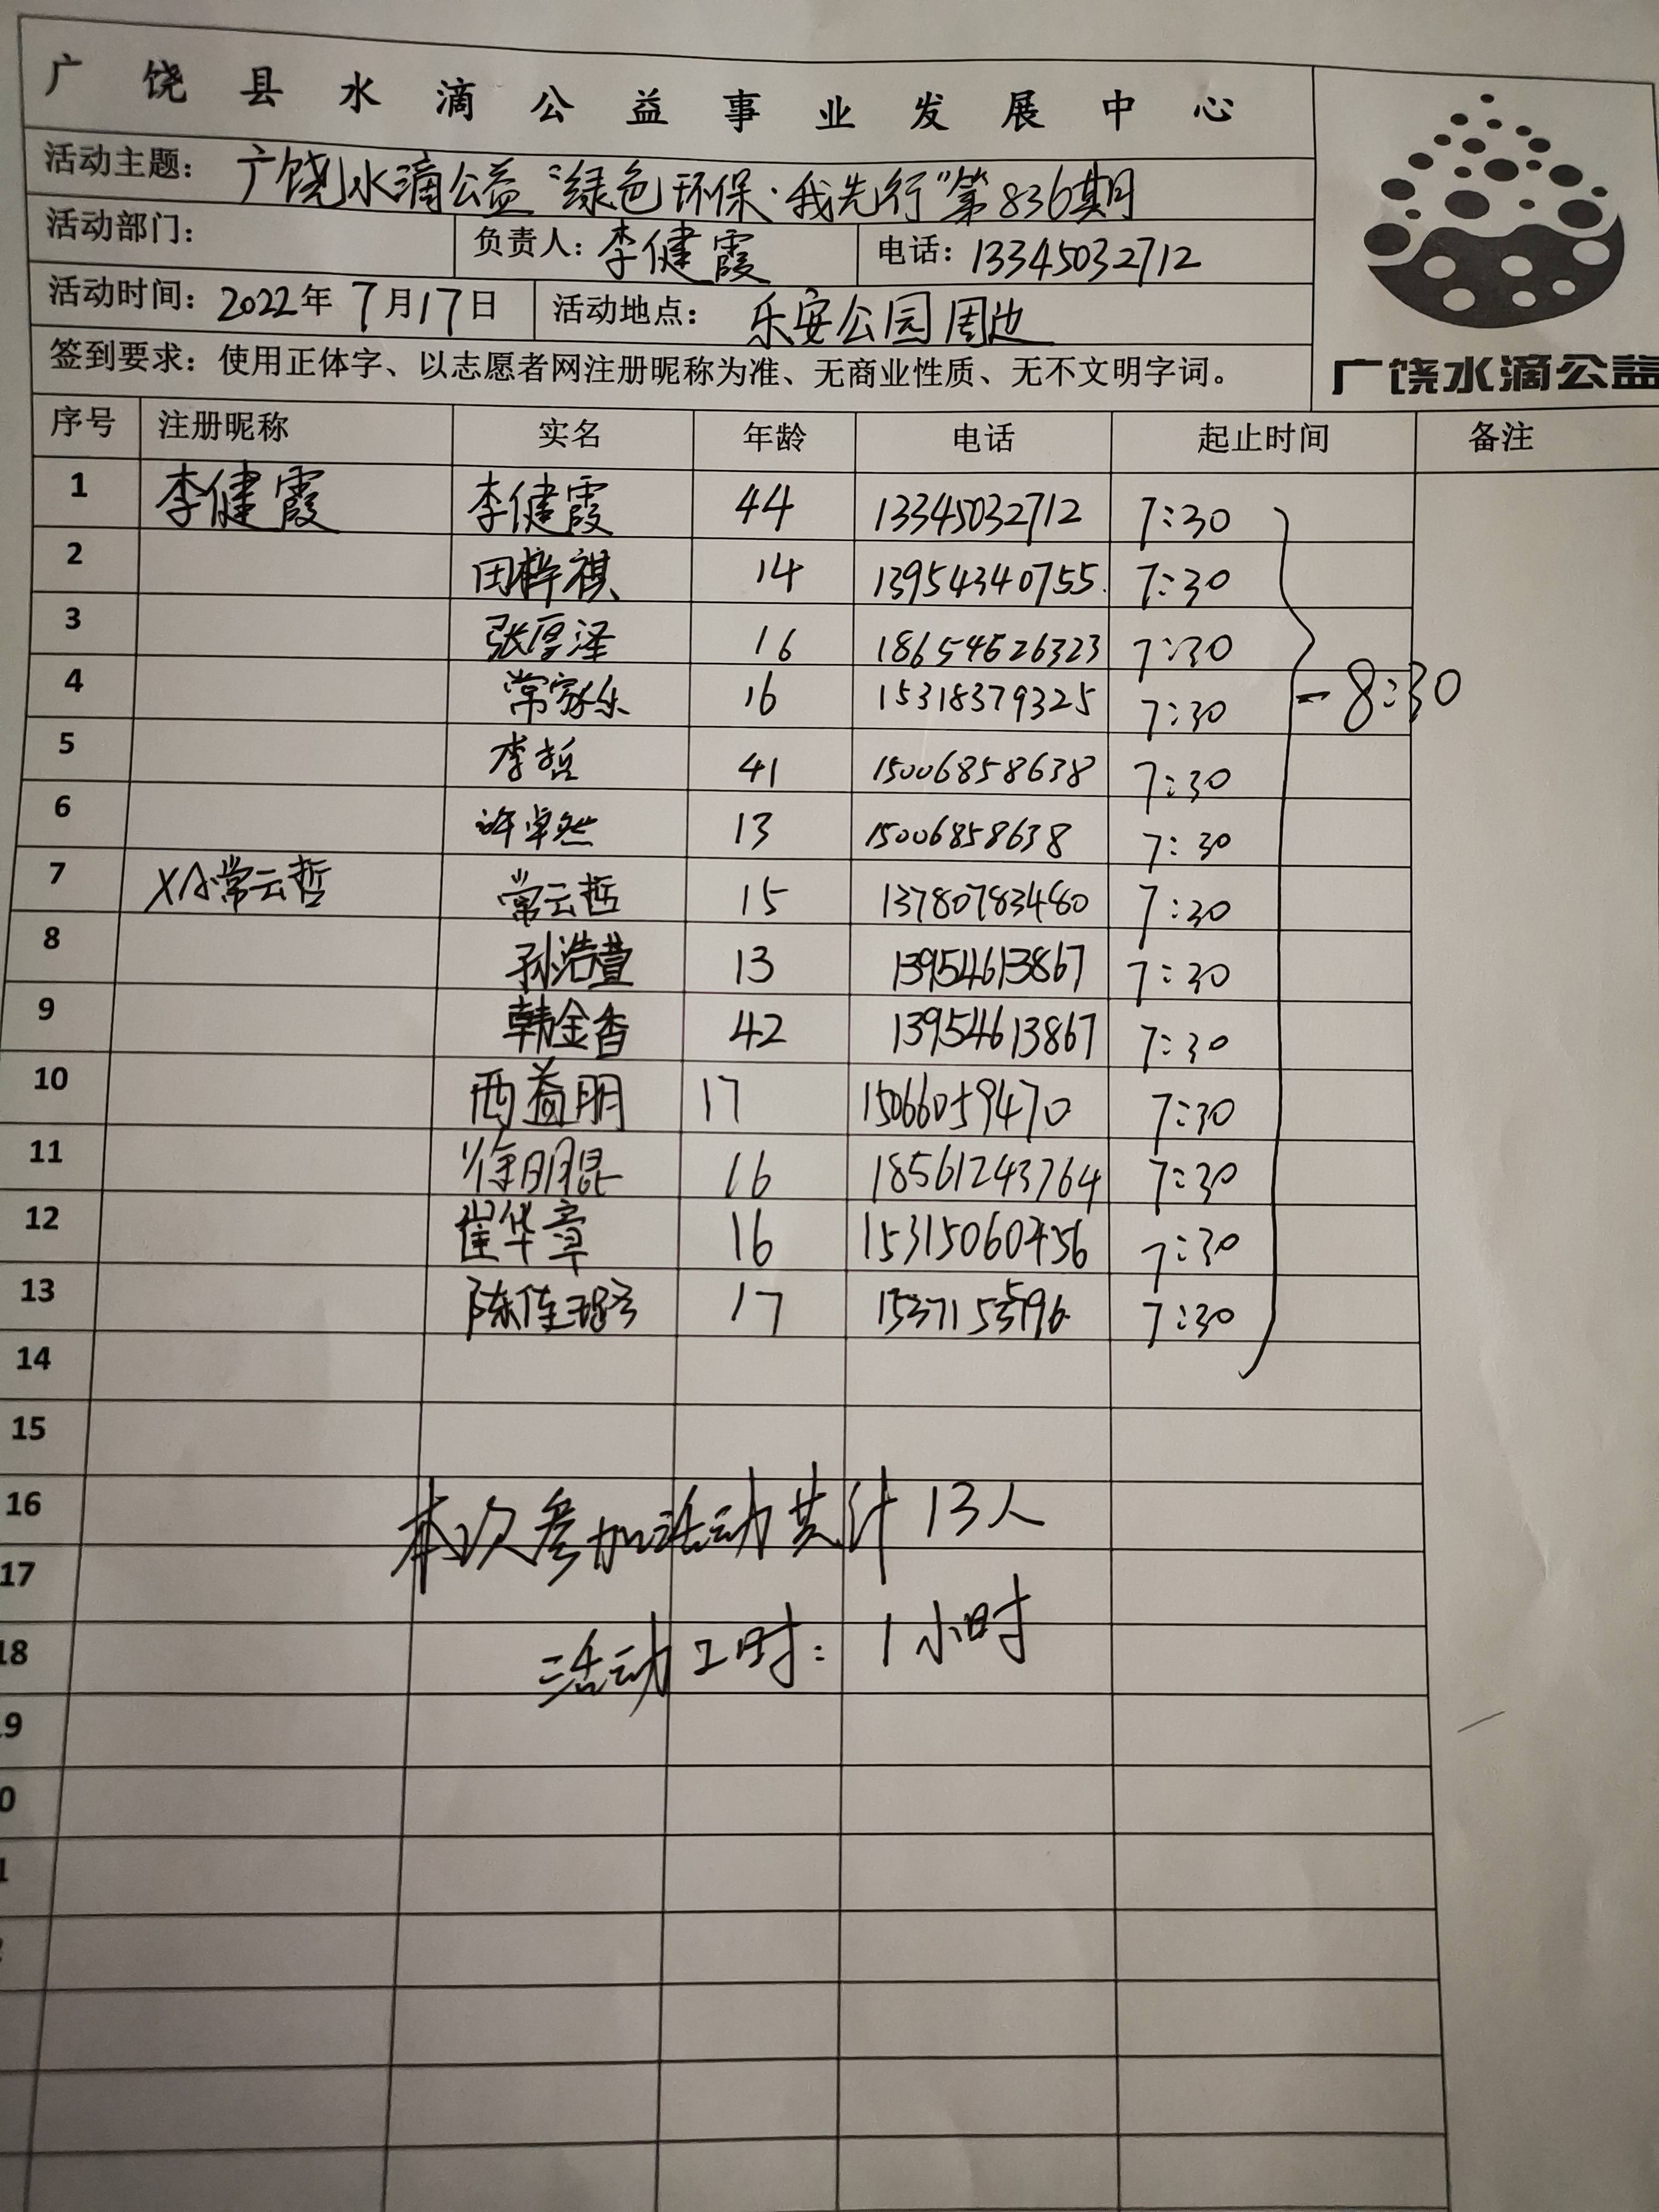 广饶县水滴公益事业发展中心
活动主题：广饶水滴公益“绿色环保·我先行”第836期
活动部门： 负责人：李健霞 电话：13345032712
活动时间：2022年7月17日 活动地点：乐安公园周边
签到要求：使用正体字、以志愿者网注册昵称为准、无商业性质、无不文明字词。
广饶水滴公益
序号 注册昵称 实名 年龄 电话 起止时间 备注
1 李健霞 李健霞 44 13345032712 7:30
2 田梓祺 14 13954340755 7:30
3 张厚泽 16 18654626323 7:30
4 常家乐 16 15318379325 7:30 - 8:30
5 李哲 41 15006858638 7:30
6 许卓然 13 15006858638 7:30
7 常云哲 常云哲 15 13780783480 7:30
8 孙浩萱 13 13954613867 7:30
9 韩金香 42 13954613867 7:30
10 西益朋 17 15066059470 7:30
11 徐明昆 16 18561243764 7:30
12 崔华章 16 15315060456 7:30
13 陈佳 17 7:30
14
15
16 本次参加活动共计13人
17
18 活动工时：1小时